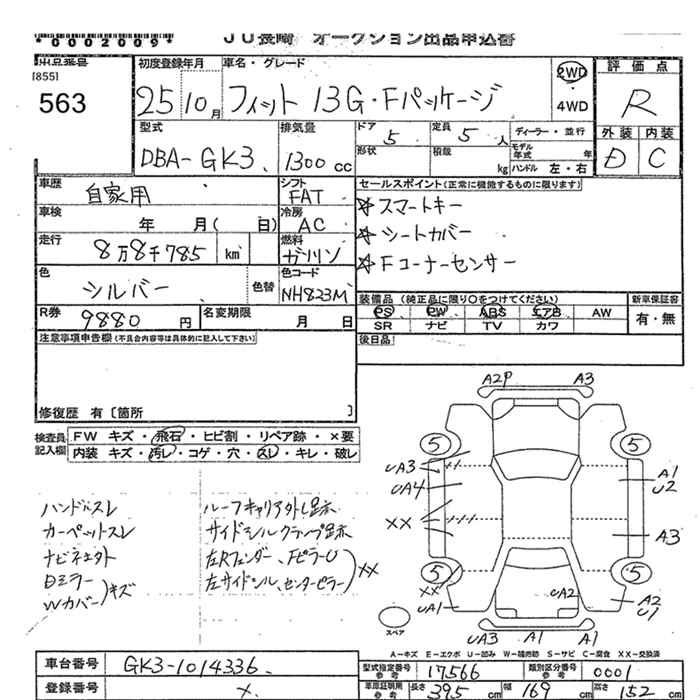 *0002009* JU長崎 オークション出品申込書
出品番号 初度登録年月 車名・グレード 2WD 評価点
[855]
563 25 10月 フィット 13G・Fパッケージ 4WD R
型式 排気量 ドア 5 定員 5人 ディーラー・並行 外装 内装
DBA-GK3 1300cc 形状 積載 kg モデル年式 年 ハンドル 左・右 D C
車歴 自家用 シフト FAT セールスポイント(正常に機能するものに限ります)
車検 年 月( 日) 冷房 AC ☆スマートキー
走行 8万8千785 km 燃料 ガソリン ☆シートカバー
色 シルバー 色替 色コード NH823M ☆Fコーナーセンサー
R券 9880円 名変期限 月 日 装備品(純正品に限り○をつけてください) 新車保証書
PS PW ABS エアB AW 有・無
SR ナビ TV カワ
注意事項申告欄(不具合内容等は具体的に記入して下さい) 後日品
修復歴 有〔箇所 〕
検査員記入欄 FW キズ・飛石・ヒビ割・リペア跡・×要
内装 キズ・汚レ・コゲ・穴・スレ・キレ・破レ
A2P A3
5 5
UA3 A1
UA4 U2
XX A3
5 5
XX UA2 A2
UA1 U1
スペア UA3 A1 A1
ハンドルスレ ルーフキャリア外し跡
カーペットスレ サイドシルクランプ跡
ナビネエタト 左Rフェンダー、FピラーU
Dミラー 左サイドシル、センターピラー XX
Wカバー キズ
A-キズ E-エクボ U-凹み W-補修跡 S-サビ C-腐食 XX-交換済
車台番号 GK3-1014336 型式指定番号 参考 17566 類別区分番号 参考 0001
登録番号 × 車庫証明用 参考 長さ 395cm 幅 169cm 高さ 152cm